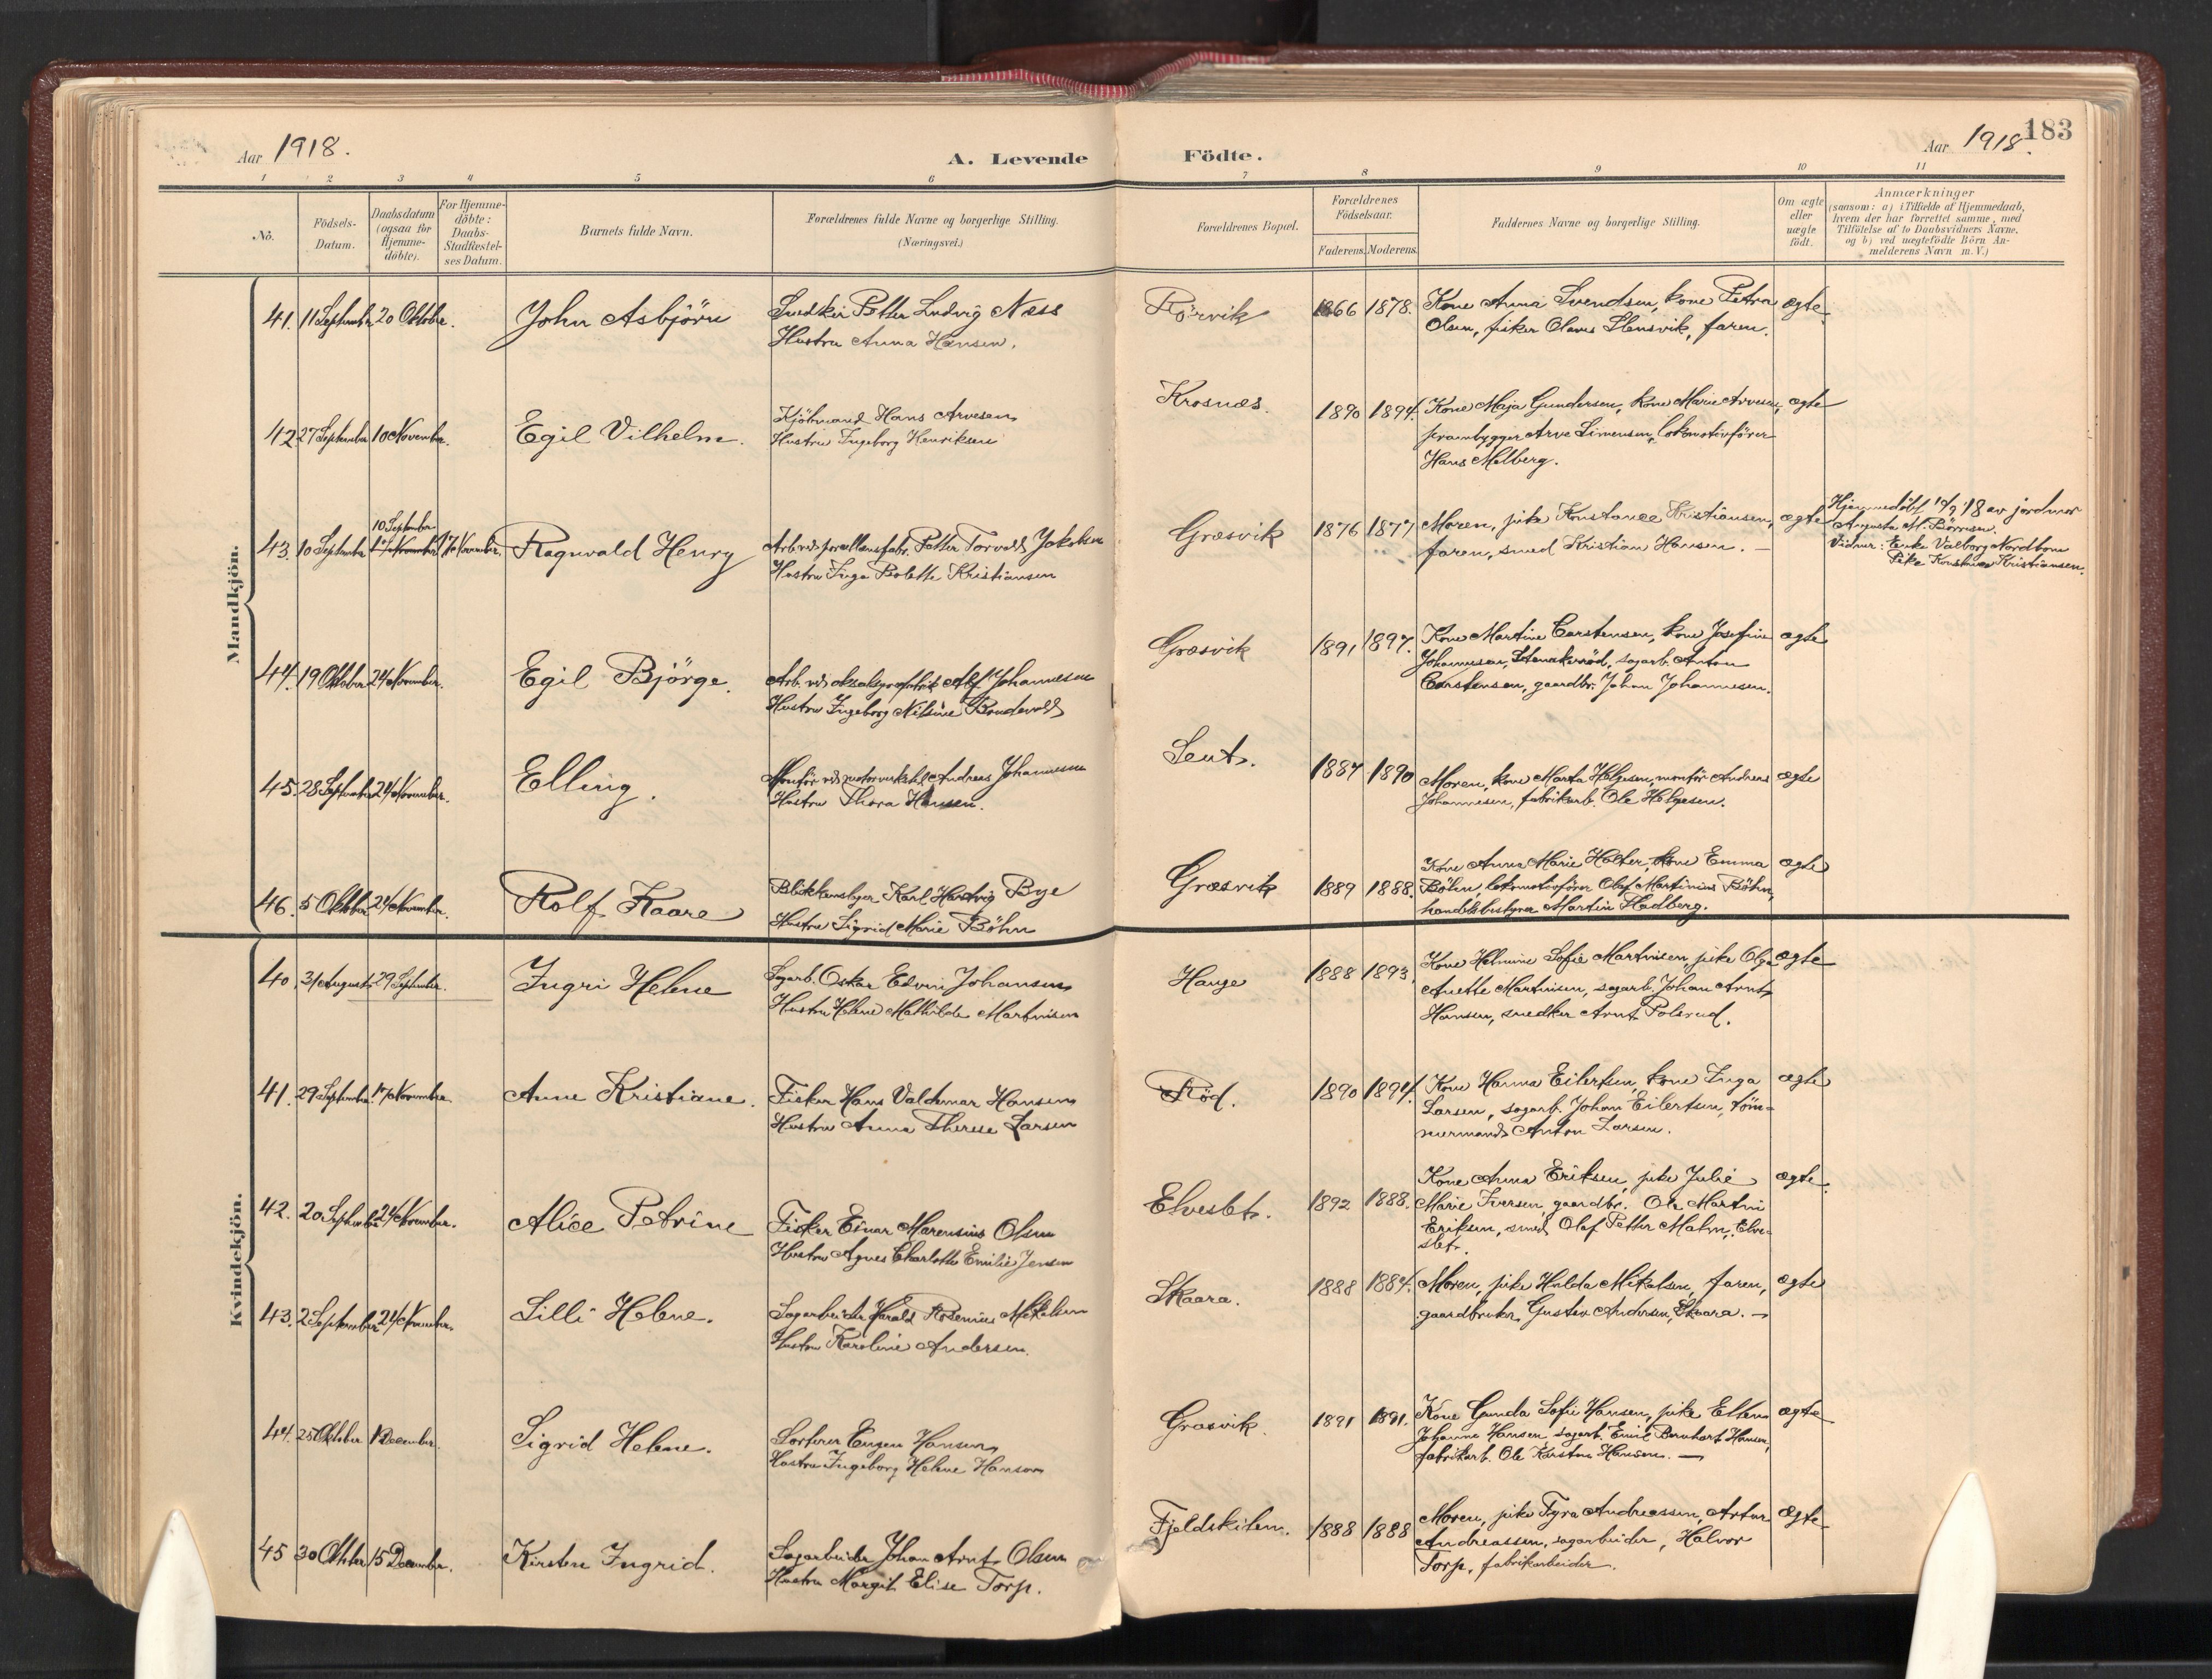 Aar 1918.
A. Levende
Födte.
Aar 1918. 183
1 2 3 4 5 6 7 8 9 10 11
No.
Födsels-Datum.
Daabsdatum (ogsaa for Hjemme-döbte).
For Hjemme-döbte: Daabs-Stadfæstel-ses Datum.
Barnets fulde Navn.
Forældrenes fulde Navne og borgerlige Stilling. (Næringsvei.)
Forældrenes Bopæl.
Forældrenes Födselsaar.
Faderens. Moderens.
Faddernes Navne og borgerlige Stilling.
Om ægte eller uægte födt.
Anmærkninger
(saasom: a) i Tilfælde af Hjemmedaab,
hvem der har forrettet samme, med
Tilföielse af to Daabsvidners Navne,
og b) ved uægtefödte Börn An-
melderens Navn m. V.)
Mandkjön.
41. 11 September 20 Oktober. John Asbjörn
Snedker Petter Ludvig Næss
Hustru Anna Hansen.
Rörvik 1866 1878.
Kone Anna Svendsen, kone Petra
Olsen, fisker Olaves Slensvik, faren.
ægte.
42 27 September 10 November. Egil Vilhelm.
Kjöbmand Hans Arvesen
Hustru Ingeborg Henriksen
Krosnæs. 1890 1894.
Kone Maja Gundersen, kone Marie Arvesen,
prambygger Arve Simensen, lokomotivförer
Hans Melberg.
ægte
43. 10 September 10 September 17 November 17 November. Ragnvald Henry
Arb. ved porcellænsfabr. Petter Torvald Jakobsen
Hustru Inga Bolette Kristiansen
Græsvik 1876 1877
Moren, pike Konstance Kristiansen,
faren, smed Kristian Hansen. —
ægte
Hjemmedöbt 10/9 18 av jordmor
Augusta M. Börresen.
Vidner: Enke Valborg Nordbom
Pike Konstance Kristiansen.
44. 19 Oktober 24 November. Egil Björge.
Arb. ved Alf Johannesen
Hustru Ingeborg Nilsine Bondevold
Græsvik 1891 1897.
Kone Martine Carstensen, kone Josefine
Johannesen, sagarb. Anton
Carstensen, gaardbr. Johan Johannesen.
ægte
45. 28 September 24 November. Elling.
Montör ved motorverksted Andreas Johannesen
Hustru Thora Hansen.
Lent. 1887 1890
Moren, kone Marta Helgesen, montör Andreas
Johannesen, fabrikarb. Ole Helgesen.
ægte
46. 5 Oktober 24 November. Rolf Kaare
Blikkenslager Karl Hartvig Bye
Hustru Sigrid Marie Böhn
Græsvik 1889 1888.
Kone Anna Marie Holter, kone Emma
Böhn, lokomotivförer Olaf Martinius Böhn,
handelsbestyrer Martin Hedberg.
ægte
Kvindekjön.
40. 31 August 29 September. Ingri Helene
Sagarb. Oskar Edvin Johansen
Hustru Helene Mathilde Martinsen
Hauge 1888 1893
Kone Helmine Sofie Martinsen, pike Olga
Anette Martinsen, sagarb. Johan Arnt
Hansen, snedker Arnt Polerud.
ægte
41. 29 September 17 November. Anne Kristiane.
Fisker Hans Valdemar Hansen
Hustru Anna Therese Larsen
Röd. 1890 1894.
Kone Hanna Eilertsen, kone Inga
Larsen, sagarb. Johan Eilertsen, töm-
mermand Anton Larsen.
ægte
42. 20 September 24 November. Alice Petrine
Fisker Einar Marensius Olsen
Hustru Agnes Charlotte Emilie Jensen
Elveslet. 1892 1888.
Kone Anna Eriksen, pike Julie
Marie Iversen, gaardbr. Ole Martin
Eriksen, smed Olaf Petter Malm, Elve-
slet.
ægte.
43. 2 September 24 November. Lilli Helene.
Sagarbeider Harald Rosenius Mikalsen
Hustru Karoline Andersen.
Skaara. 1888 1884.
Moren, pike Hulda Mikalsen, faren,
gaardbruker Gustav Andersen, Skaara. —
ægte
44. 25 Oktober 1 December. Sigrid Helene.
Sorterer Eugen Hansen
Hustru Ingeborg Helene Hanson
Græsvik. 1891 1891.
Kone Gunda Sofie Hansen, pike Ellen
Johanna Hansen sagarb. Emil Bernhart Hansen,
fabrikarb. Ole Karsten Hansen. —
ægte
45 30 Oktober 15 December. Kirsten Ingrid.
Sagarbeider Johan Arnt Olsen
Hustru Margit Elise Torp.
Fjeldskilen. 1888 1888
Moren, pike Fyra Andreassen, Artur
Andreassen, sagarbeider, Halvor
Torp, fabrikarbeider.
ægte